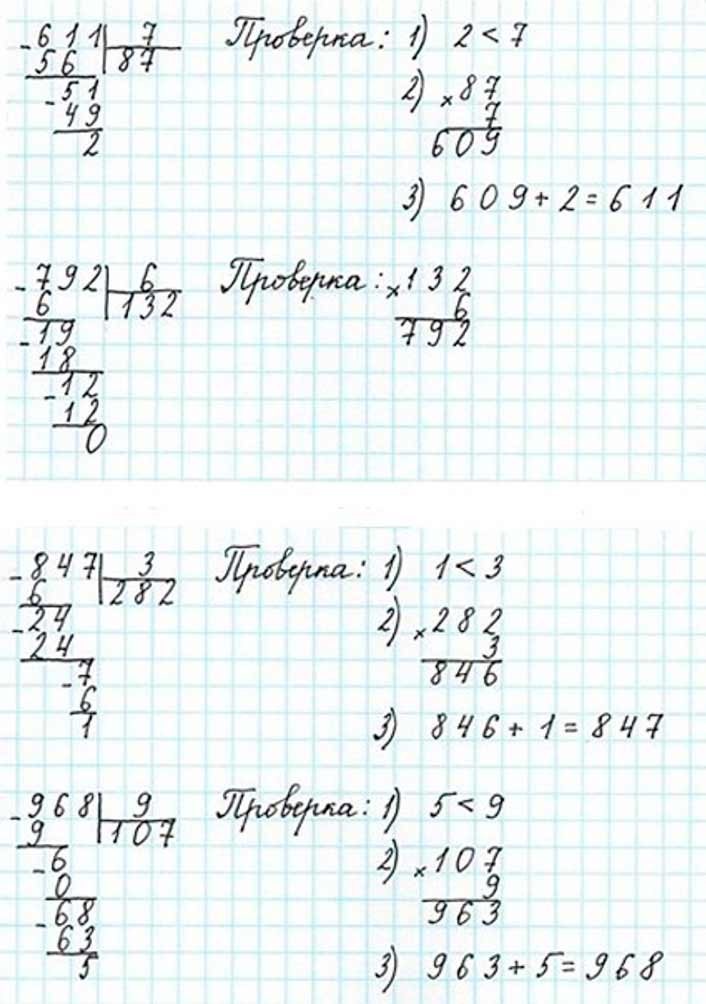 -611|7 Проверка: 1) 2 < 7
56 87 2) ×87
-51 7
49 609
2 3) 609 + 2 = 611
-792|6 Проверка: ×132
6 132 6
-19 792
18
-12
12
0
-847|3 Проверка: 1) 1 < 3
6 282 2) ×282
-24 3
24 846
-7
6
1 3) 846 + 1 = 847
-968|9 Проверка: 1) 5 < 9
9 107
-6 2) ×107
0 9
-68 963
63
5 3) 963 + 5 = 968